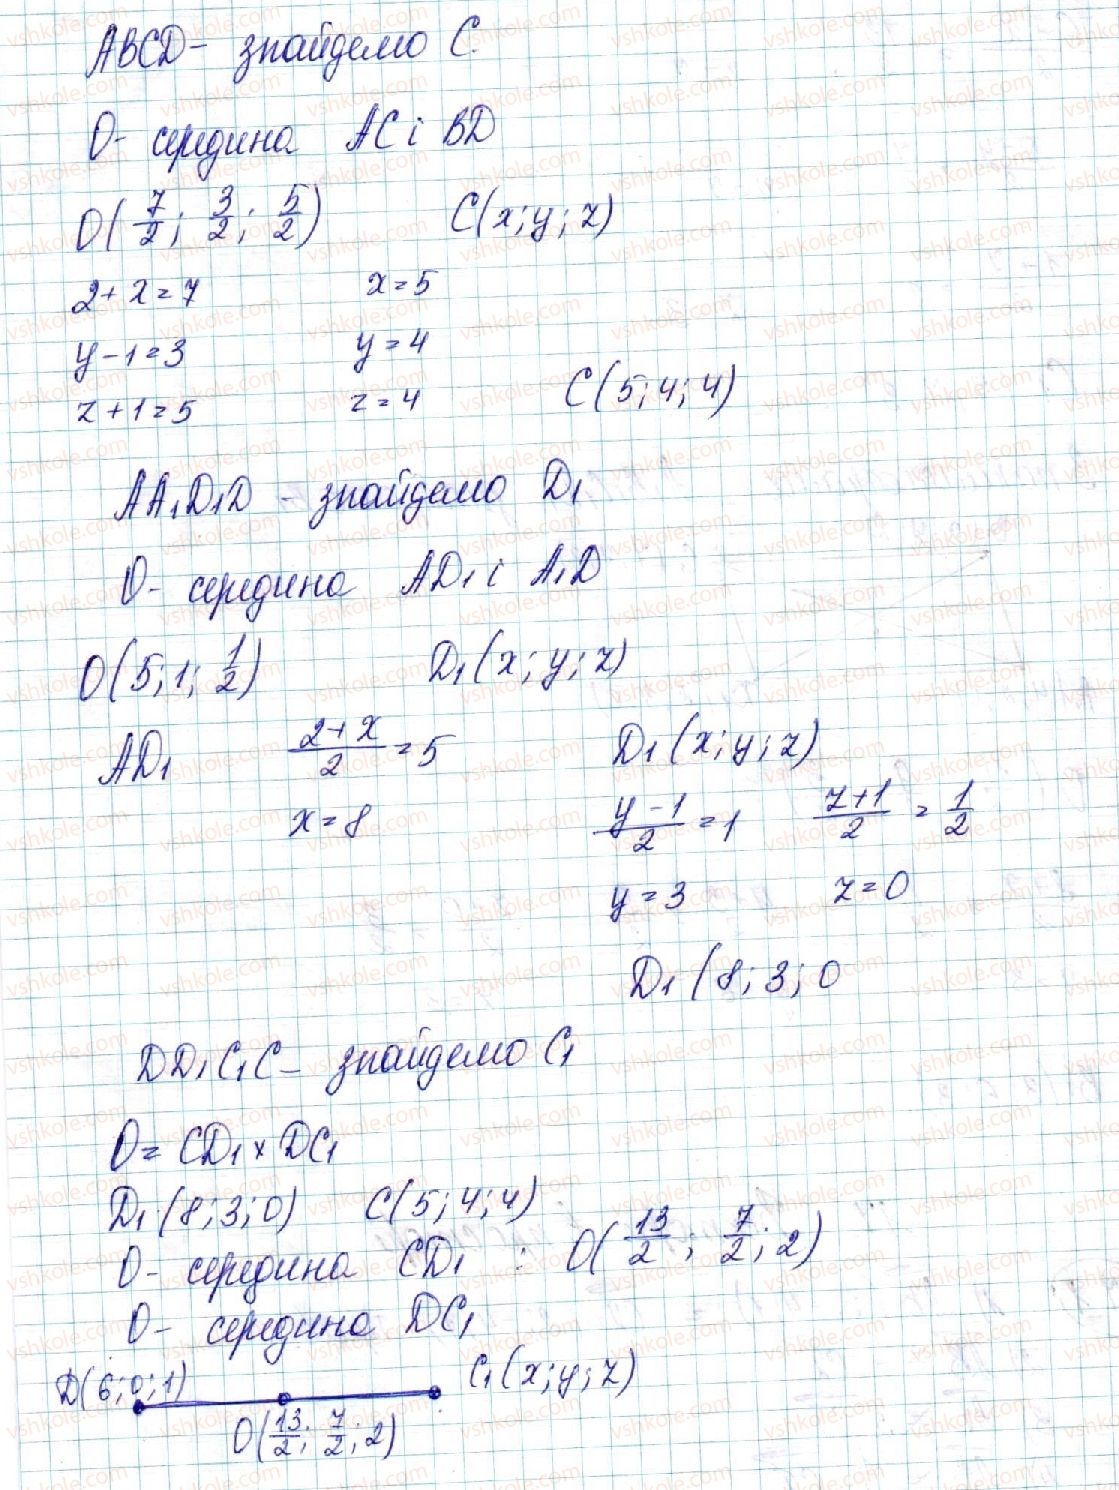 ABCD - знайдемо C.
O - середина AC і BD
O(7/2; 3/2; 5/2) C(x; y; z)
2 + x = 7 x = 5
y - 1 = 3 y = 4
z + 1 = 5 z = 4 C(5; 4; 4)
AA₁D₁D - знайдемо D₁
O - середина AD₁ і A₁D
O(5; 1; 1/2) D₁(x; y; z)
AD₁ (2 + x)/2 = 5 D₁(x; y; z)
x = 8 (y - 1)/2 = 1 (z + 1)/2 = 1/2
y = 3 z = 0
D₁(8; 3; 0
DD₁C₁C - знайдемо C₁
O = CD₁ × DC₁
D₁(8; 3; 0) C(5; 4; 4)
O - середина CD₁ : O(13/2; 7/2; 2)
O - середина DC₁
D(6; 0; 1) C₁(x; y; z)
O(13/2; 7/2; 2)